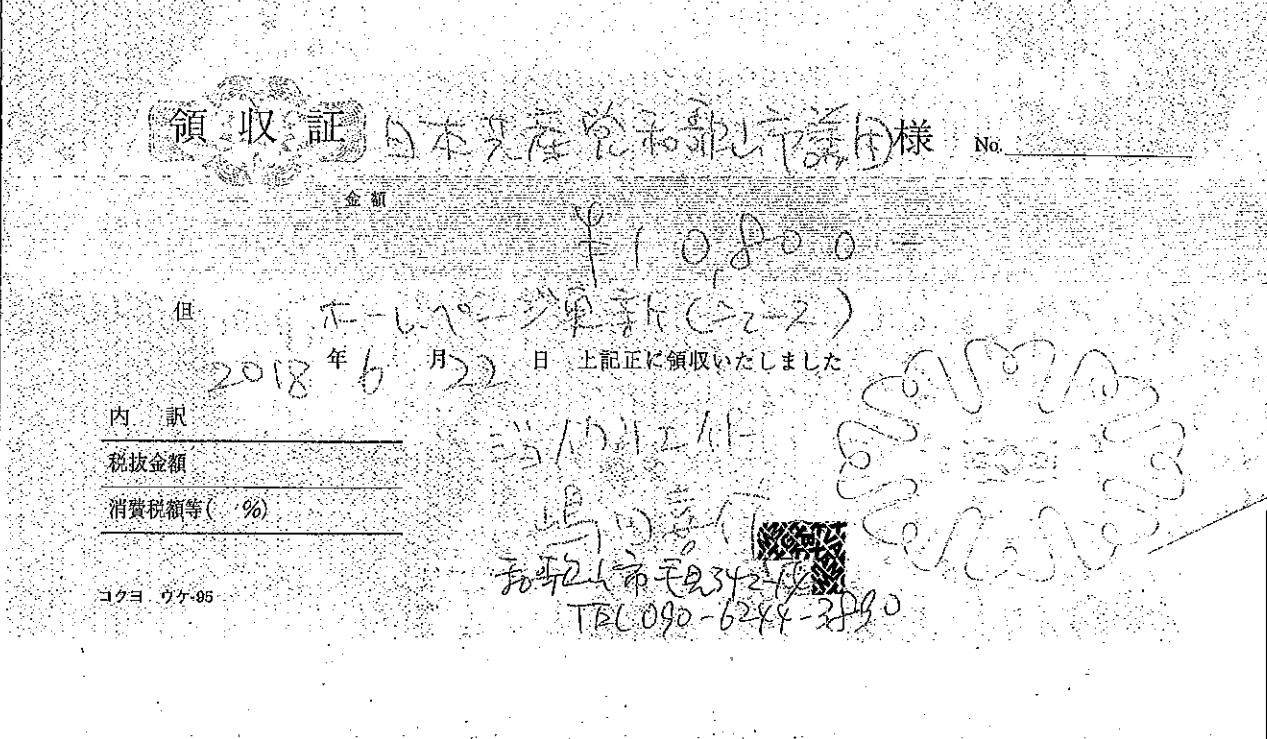 領収証 日本共産党和歌山市議団様 No.
金額
¥10,800-
但 ホームページ更新(ニュース)
2018年6月22日 上記正に領収いたしました
内訳
税抜金額
消費税額等( %)
和歌山市毛見342-14
TEL 090-6244-3890
コクヨ ウケ-95